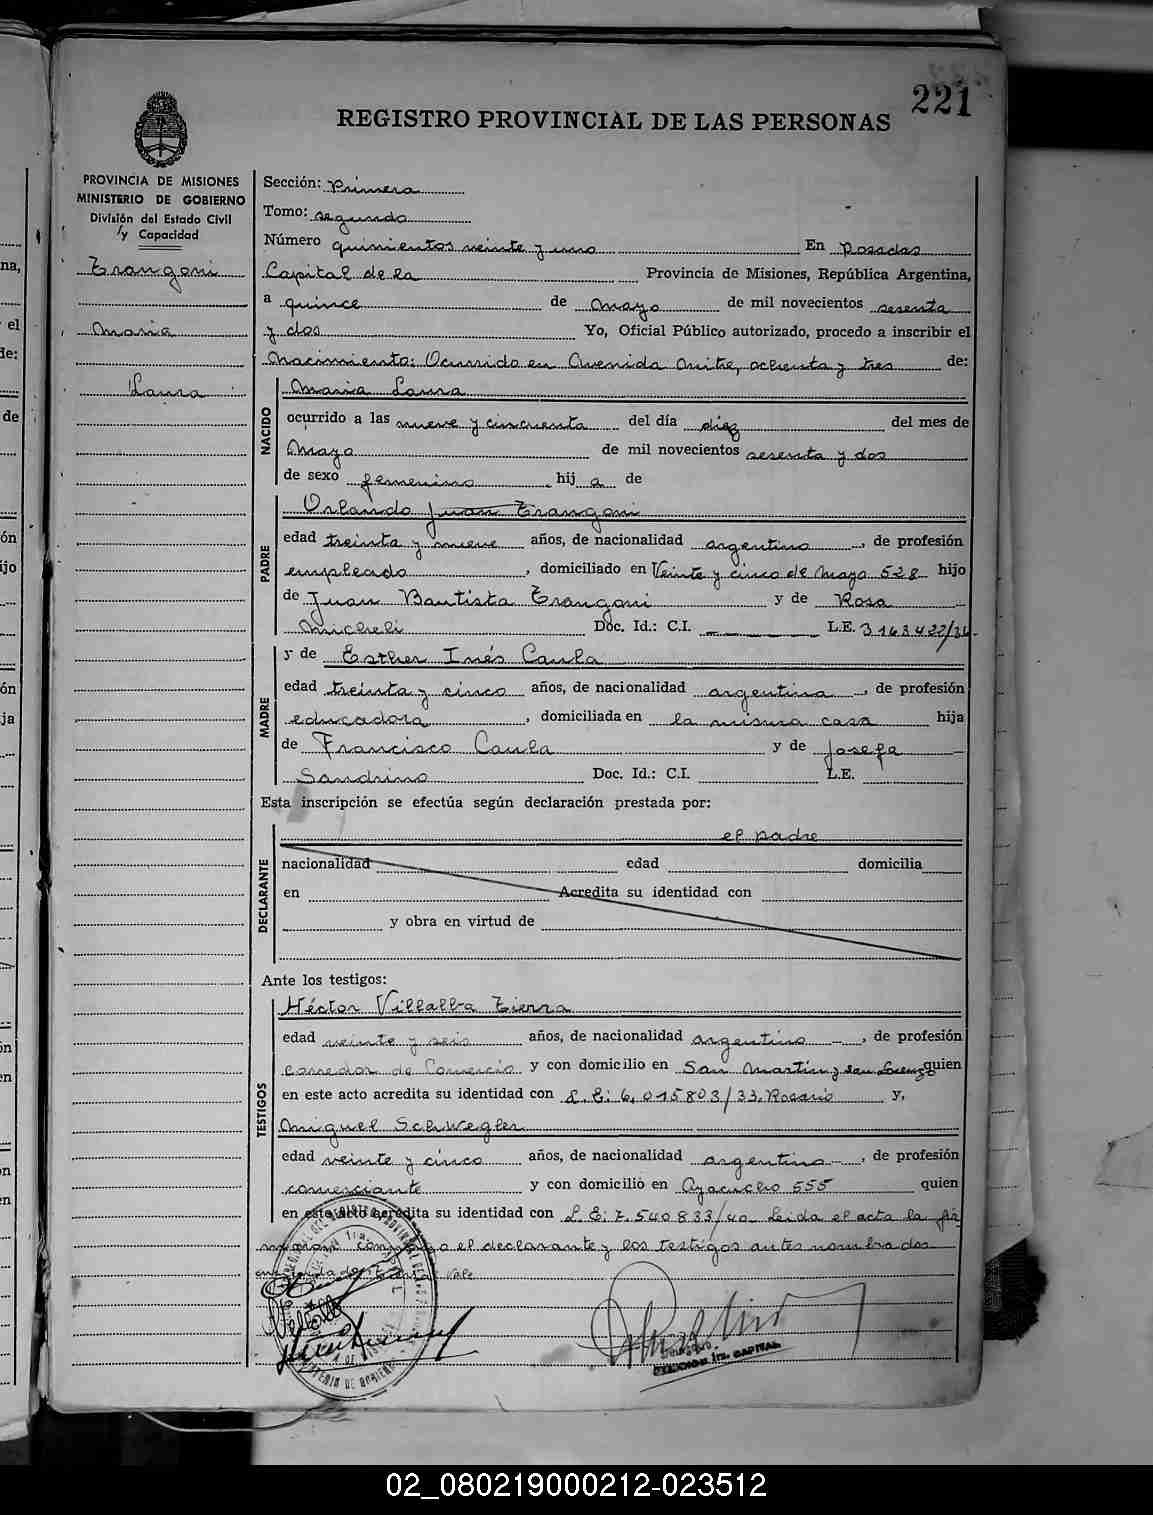 221
REGISTRO PROVINCIAL DE LAS PERSONAS
PROVINCIA DE MISIONES
MINISTERIO DE GOBIERNO
División del Estado Civil
y Capacidad
Trangoni
Maria
Laura
Sección: Primera
Tomo: segundo
Número quinientos veinte y uno En Posadas
Capital de la Provincia de Misiones, República Argentina,
a quince de Mayo de mil novecientos sesenta
y dos Yo, Oficial Público autorizado, procedo a inscribir el
Nacimiento: Ocurrido en Avenida Mitre, ochenta y tres de:
NACIDO
Maria Laura
ocurrido a las nueve y cincuenta del día diez del mes de
Mayo de mil novecientos sesenta y dos
de sexo femenino hij a de
PADRE
Orlando Juan Trangoni
edad treinta y nueve años, de nacionalidad argentino, de profesión
empleado, domiciliado en Veinte y cinco de Mayo 528 hijo
de Juan Bautista Trangoni y de Rosa
Micheli Doc. Id.: C.I. L.E. 3163422/
MADRE
y de Esther Inés Caula
edad treinta y cinco años, de nacionalidad argentina, de profesión
educadora, domiciliada en la misma casa hija
de Francisco Caula y de Josefa
Sandrino Doc. Id.: C.I. L.E.
Esta inscripción se efectúa según declaración prestada por:
DECLARANTE
el padre
nacionalidad edad domicilia
en Acredita su identidad con
y obra en virtud de
Ante los testigos:
TESTIGOS
Héctor Villalba Tierra
edad veinte y seis años, de nacionalidad argentino, de profesión
corredor de Comercio y con domicilio en San Martin y San Lorenzo quien
en este acto acredita su identidad con L.E: 6.015803/33. Rosario y,
Miguel Schwegler
edad veinte y cinco años, de nacionalidad argentino, de profesión
comerciante y con domicilio en Ayacucho 555 quien
en este acto acredita su identidad con L.E: 7.540833/40 Leida el acta la fir
maron conmigo el declarante y los testigos antes nombrados
Vale
CAPITAL
02_080219000212-023512